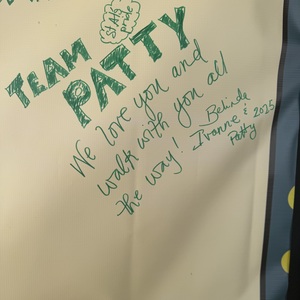 TEAM
PATTY
We love you and
walk with you all
the way!
Belinda
Ivonne & 2025
Patty